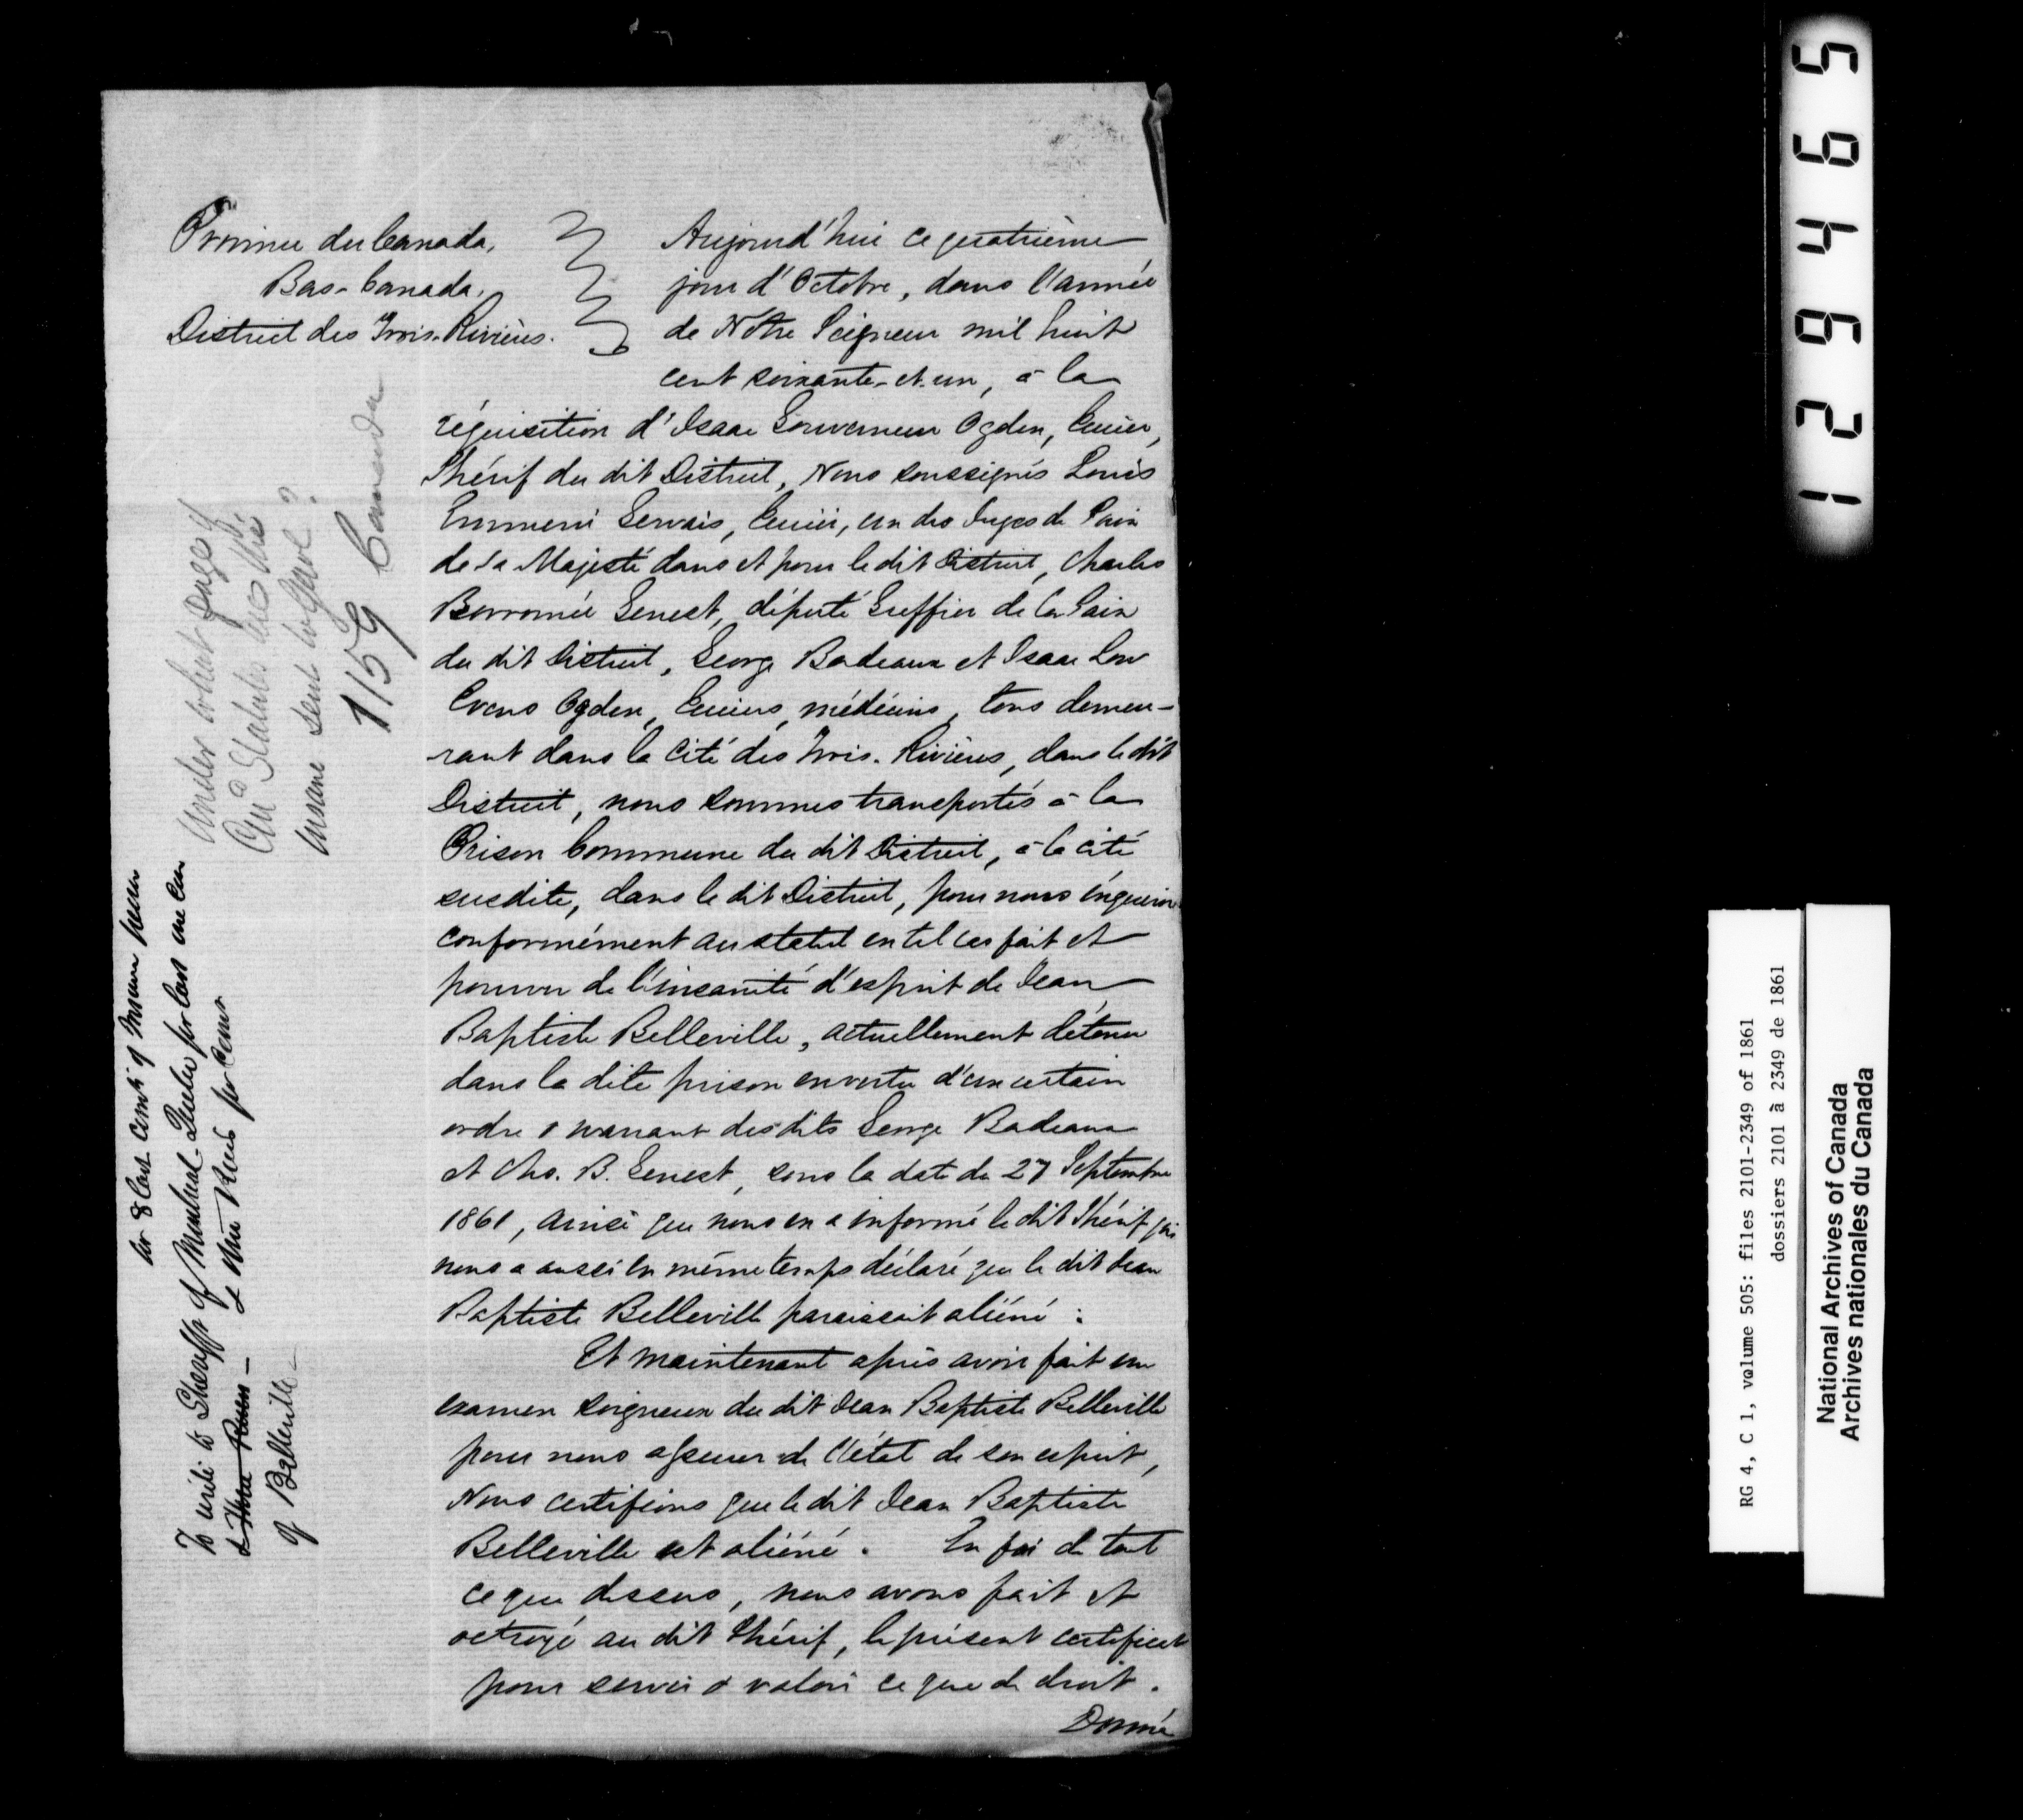 Province du Canada,
Bas-Canada,
District des Trois-Rivières.
Aujourd'hui ce quatrième
jour d'Octobre, dans l'année
de Notre Seigneur mil huit
cent soixante-et-un, à la
réquisition d'Isaac Gouverneur Ogden, Ecuier,
Shérif du dit District, Nous soussignés Louis
Gervais, Ecuier, un des Juges de Paix
de Sa Majesté dans et pour le dit District, Charles
Borromée Genest, député Greffier de la Paix
du dit District, George Badeaux et Isaac Low
Evans Ogden, Ecuiers, médécins, tous demeu-
rant dans la Cité des Trois-Rivières, dans le dit
District, nous sommes transportés à la
Prison Commune du dit District, à la cité
susdite, dans le dit District, pour nous enquérir
conformément au statut en tel cas fait et
pourvu de l'insanité d'esprit de Jean
Baptiste Belleville, actuellement détenu
dans la dite prison en vertu d'un certain
ordre & warrant des dits George Badeaux
et Chs. B. Genest, sous la date du 27 Septembre
1861, ainsi que nous en a informé le dit Shérif qui
nous a aussi en même temps déclaré que le dit Jean
Baptiste Belleville paraissait aliéné :
Et maintenant après avoir fait un
examen soigneux du dit Jean Baptiste Belleville
pour nous assurer de l'état de son esprit,
Nous certifions que le dit Jean Baptiste
Belleville est aliéné. En foi de tout
ce que dessus, nous avons fait et
octroyé au dit Shérif, le présent certificat
pour servir & valoir ce que de droit.
Donné
Under what page of
Con Statutes are this
insane sent to gaol?
1159 Canada
for 8 last
To write to Sheriffs of Montreal-Quebec for last
& Three Rivers
& Three Rivers for
of Belleville
129465
RG 4, C 1, volume 505: files 2101-2349 of 1861
dossiers 2101 à 2349 de 1861
National Archives of Canada
Archives nationales du Canada